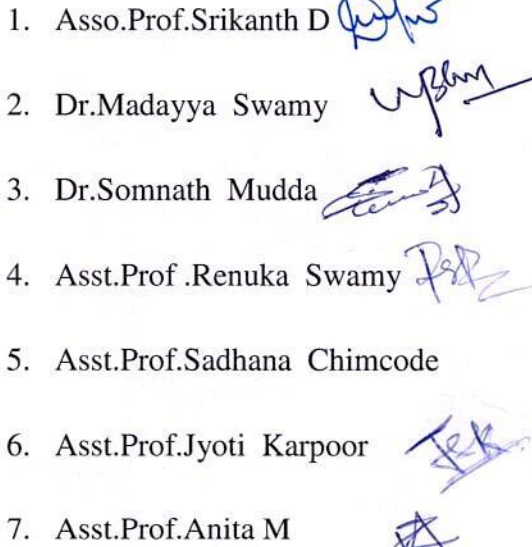 1. Asso.Prof.Srikanth D
2. Dr.Madayya Swamy
3. Dr.Somnath Mudda
4. Asst.Prof .Renuka Swamy
5. Asst.Prof.Sadhana Chimcode
6. Asst.Prof.Jyoti Karpoor
7. Asst.Prof.Anita M